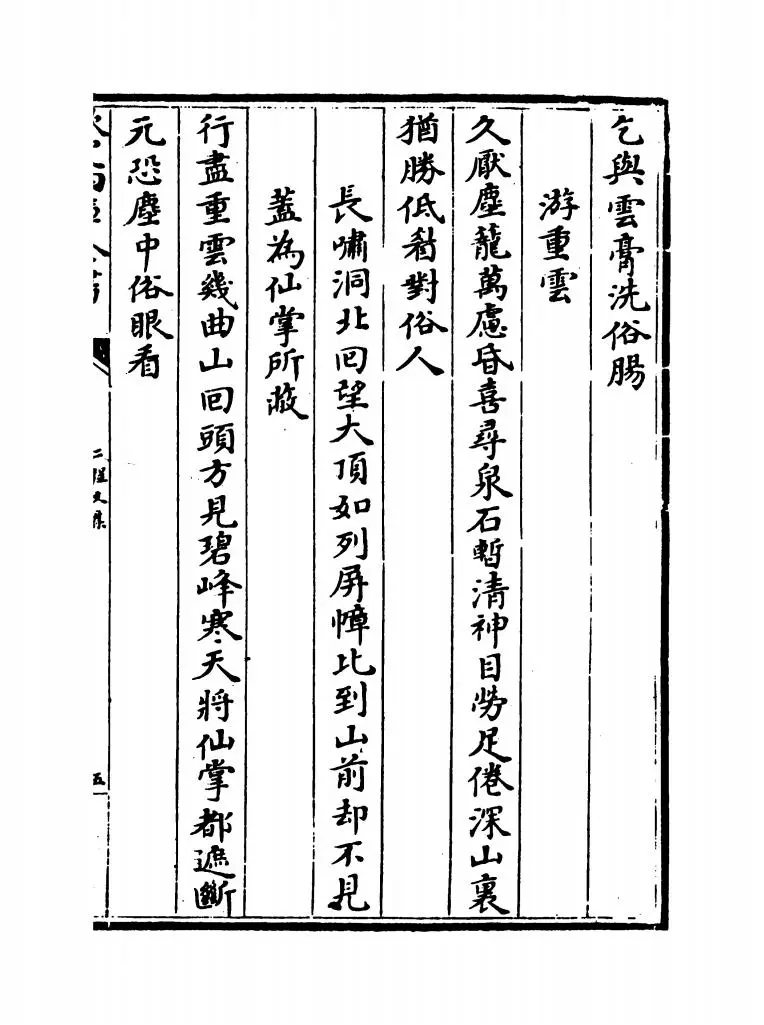 乞與雲膏洗俗腸
游重雲
久厭塵籠萬慮昏喜尋泉石暫清神目勞足倦深山裏
猶勝低眉對俗人
長嘯洞北回望大頂如列屏幛比到山前却不見
蓋為仙掌所蔽
行盡重雲幾曲山回頭方見碧峰寒天將仙掌都遮斷
元恐塵中俗眼看
二程文集
五